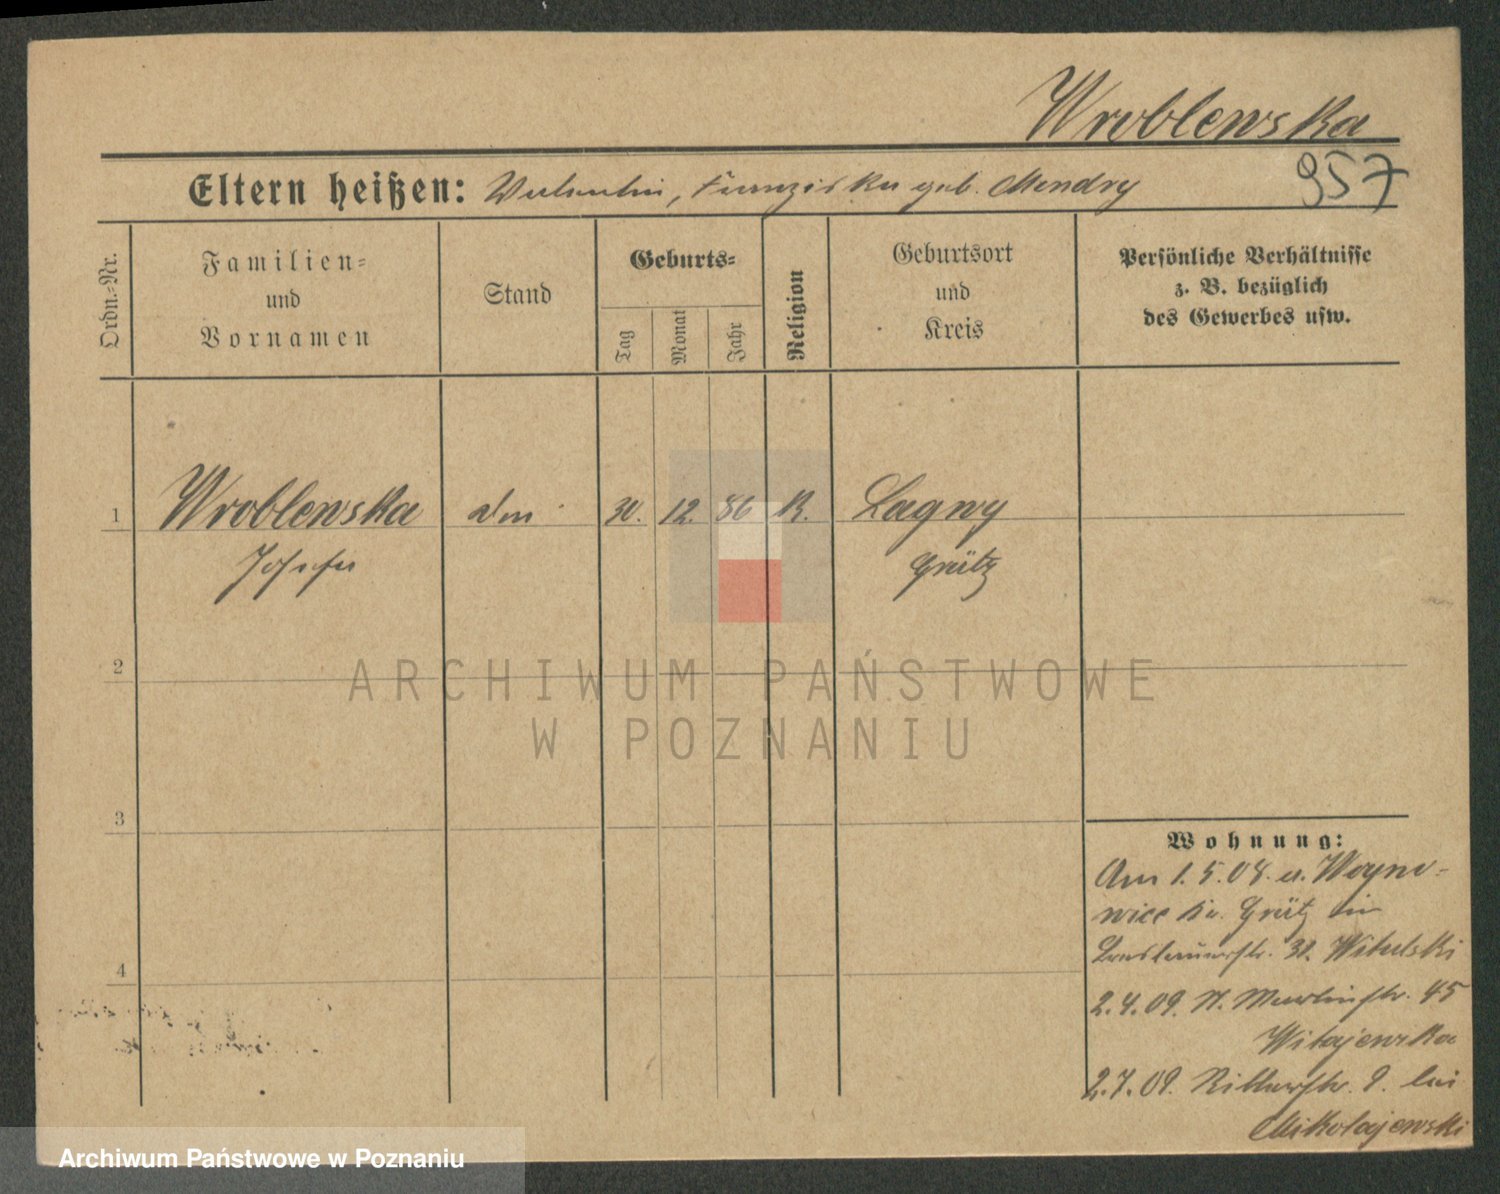 Wroblewska
957
Eltern heißen: Valentin, Franziska geb. Mendry
Ordn.-Nr.
Familien-
und
Vornamen
Stand
Geburts-
Tag
Monat
Jahr
Religion
Geburtsort
und
Kreis
Persönliche Verhältnisse
z. B. bezüglich
des Gewerbes usw.
1 Wroblewska 30. 12. 86 K. Lagwy
Josefa Grätz
2
3
4
Wohnung:
Am 1.5.08. a. Woyno-
wice Kr. Grätz in
31. Witulski
2.4.09. N. Martinstr. 45
2.7.09. Ritterstr. 9. bei
Mikolajewski
ARCHIWUM PAŃSTWOWE
W POZNANIU
Archiwum Państwowe w Poznaniu